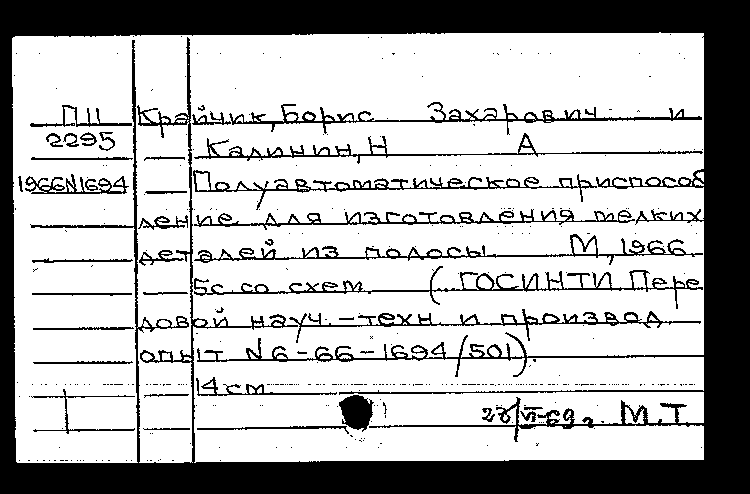 П11 Крайчик, Борис Захарович и
2295 Калинин, Н А
1966N1694 Полуавтоматическое приспособ
ление для изготовления мелких
деталей из полосы. М, 1966.
5с. со схем. (ГОСИНТИ. Пере
довой науч.-техн и производ
опыт N6-66-1694/501).
14 см.
VI-69 г. М.Т.